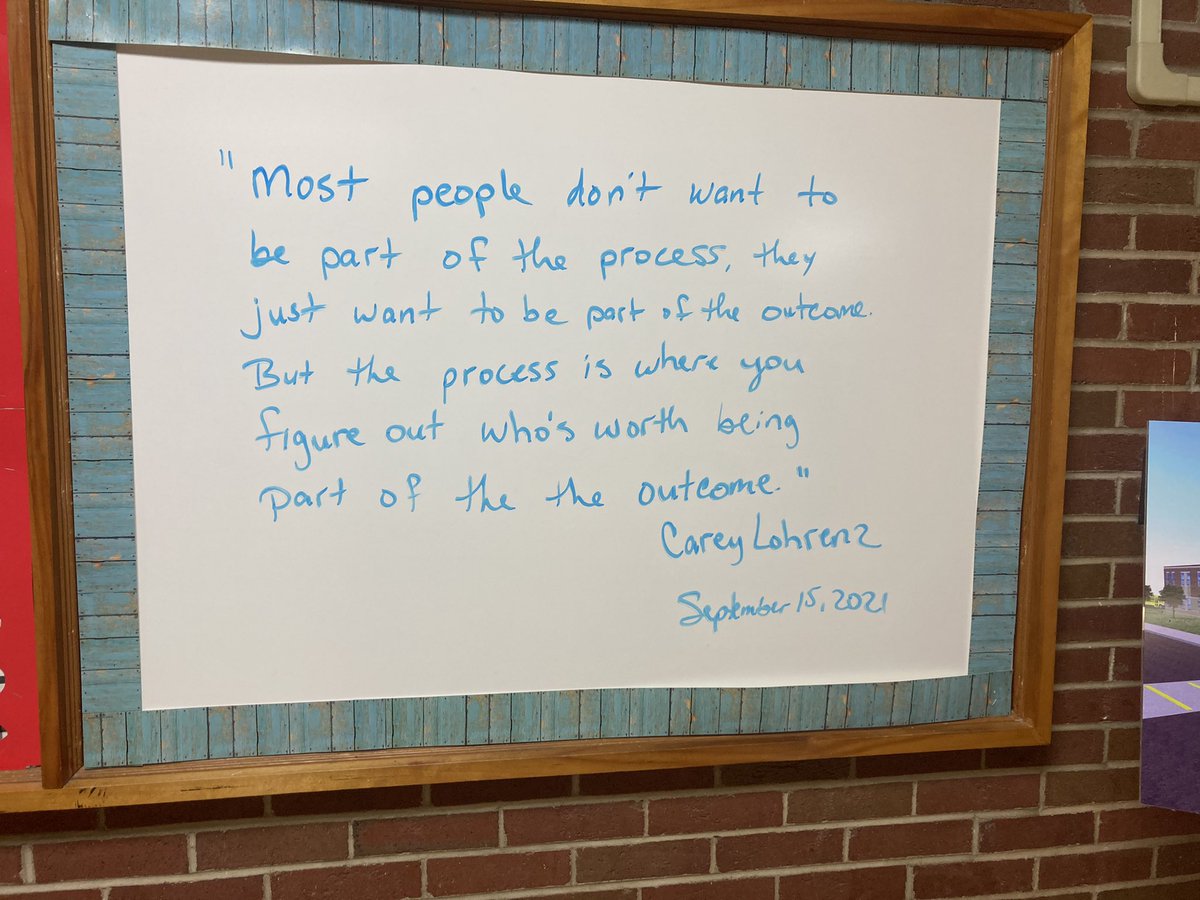 "Most people don't want to
be part of the process, they
just want to be part of the outcome.
But the process is where you
figure out who's worth being
part of the the outcome."
Carey Lohrenz
September 15, 2021